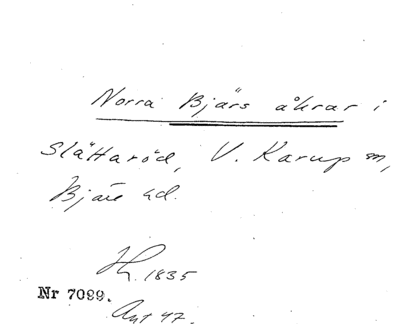 Norra Bjärs åkrar i
Slättaröd, V. Karup sn,
Bjäre hd.
H. 1835
Nr 7099.
Ant 47.